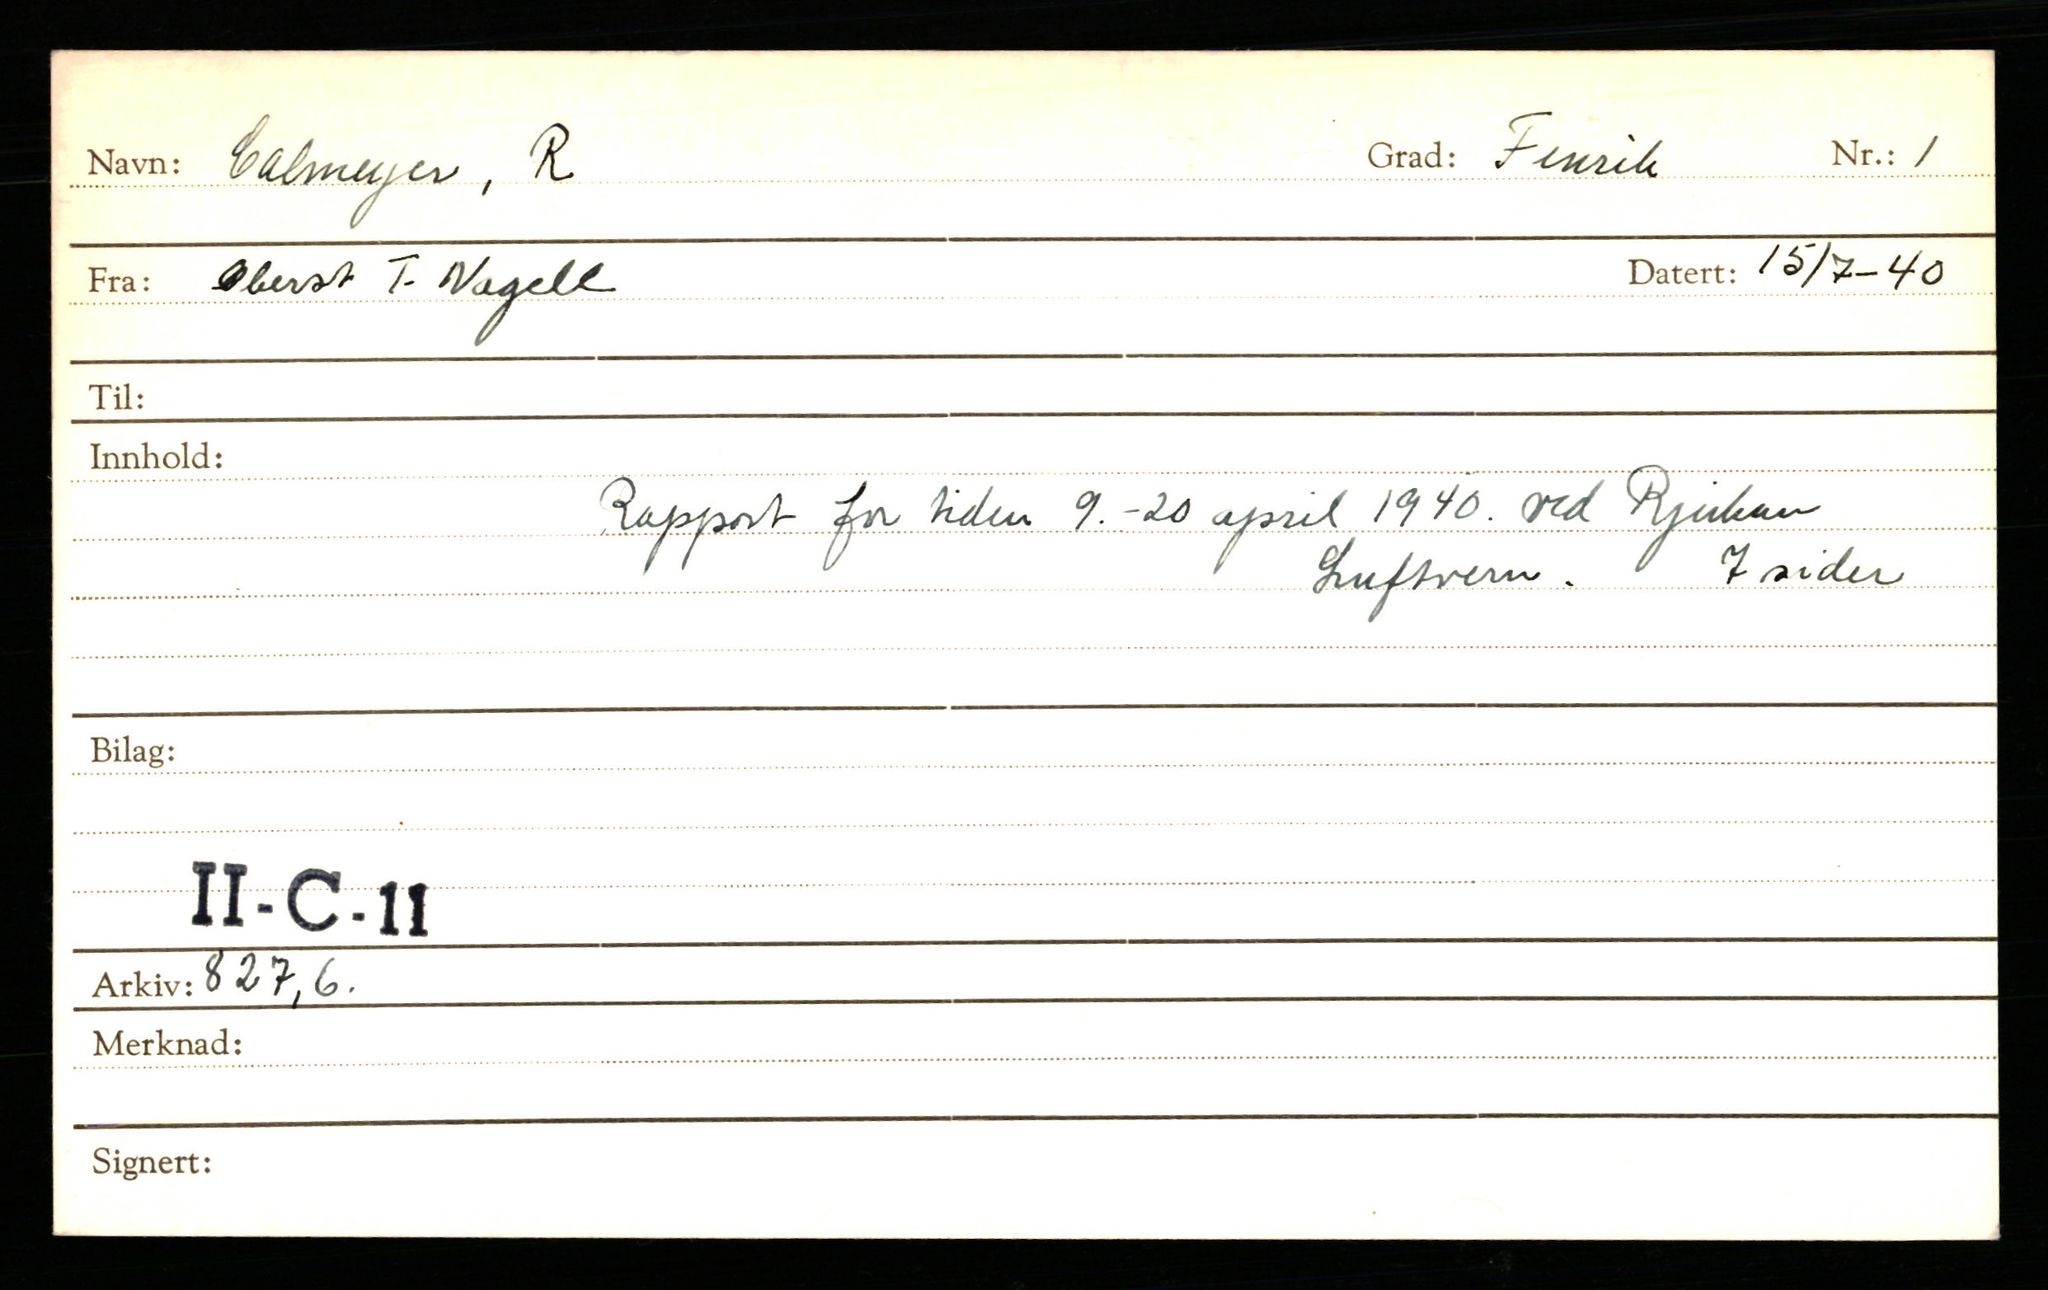 Navn: Calmeyer, R Grad: Fenrik Nr.: 1
Fra: Oberst T. Nagell Datert: 15/7-40
Til:
Innhold:
Rapport for tiden 9.-20 april 1940. ved Rjukan
Luftvern. 7 sider
Bilag:
II-C-11
Arkiv: 827,6.
Merknad:
Signert: